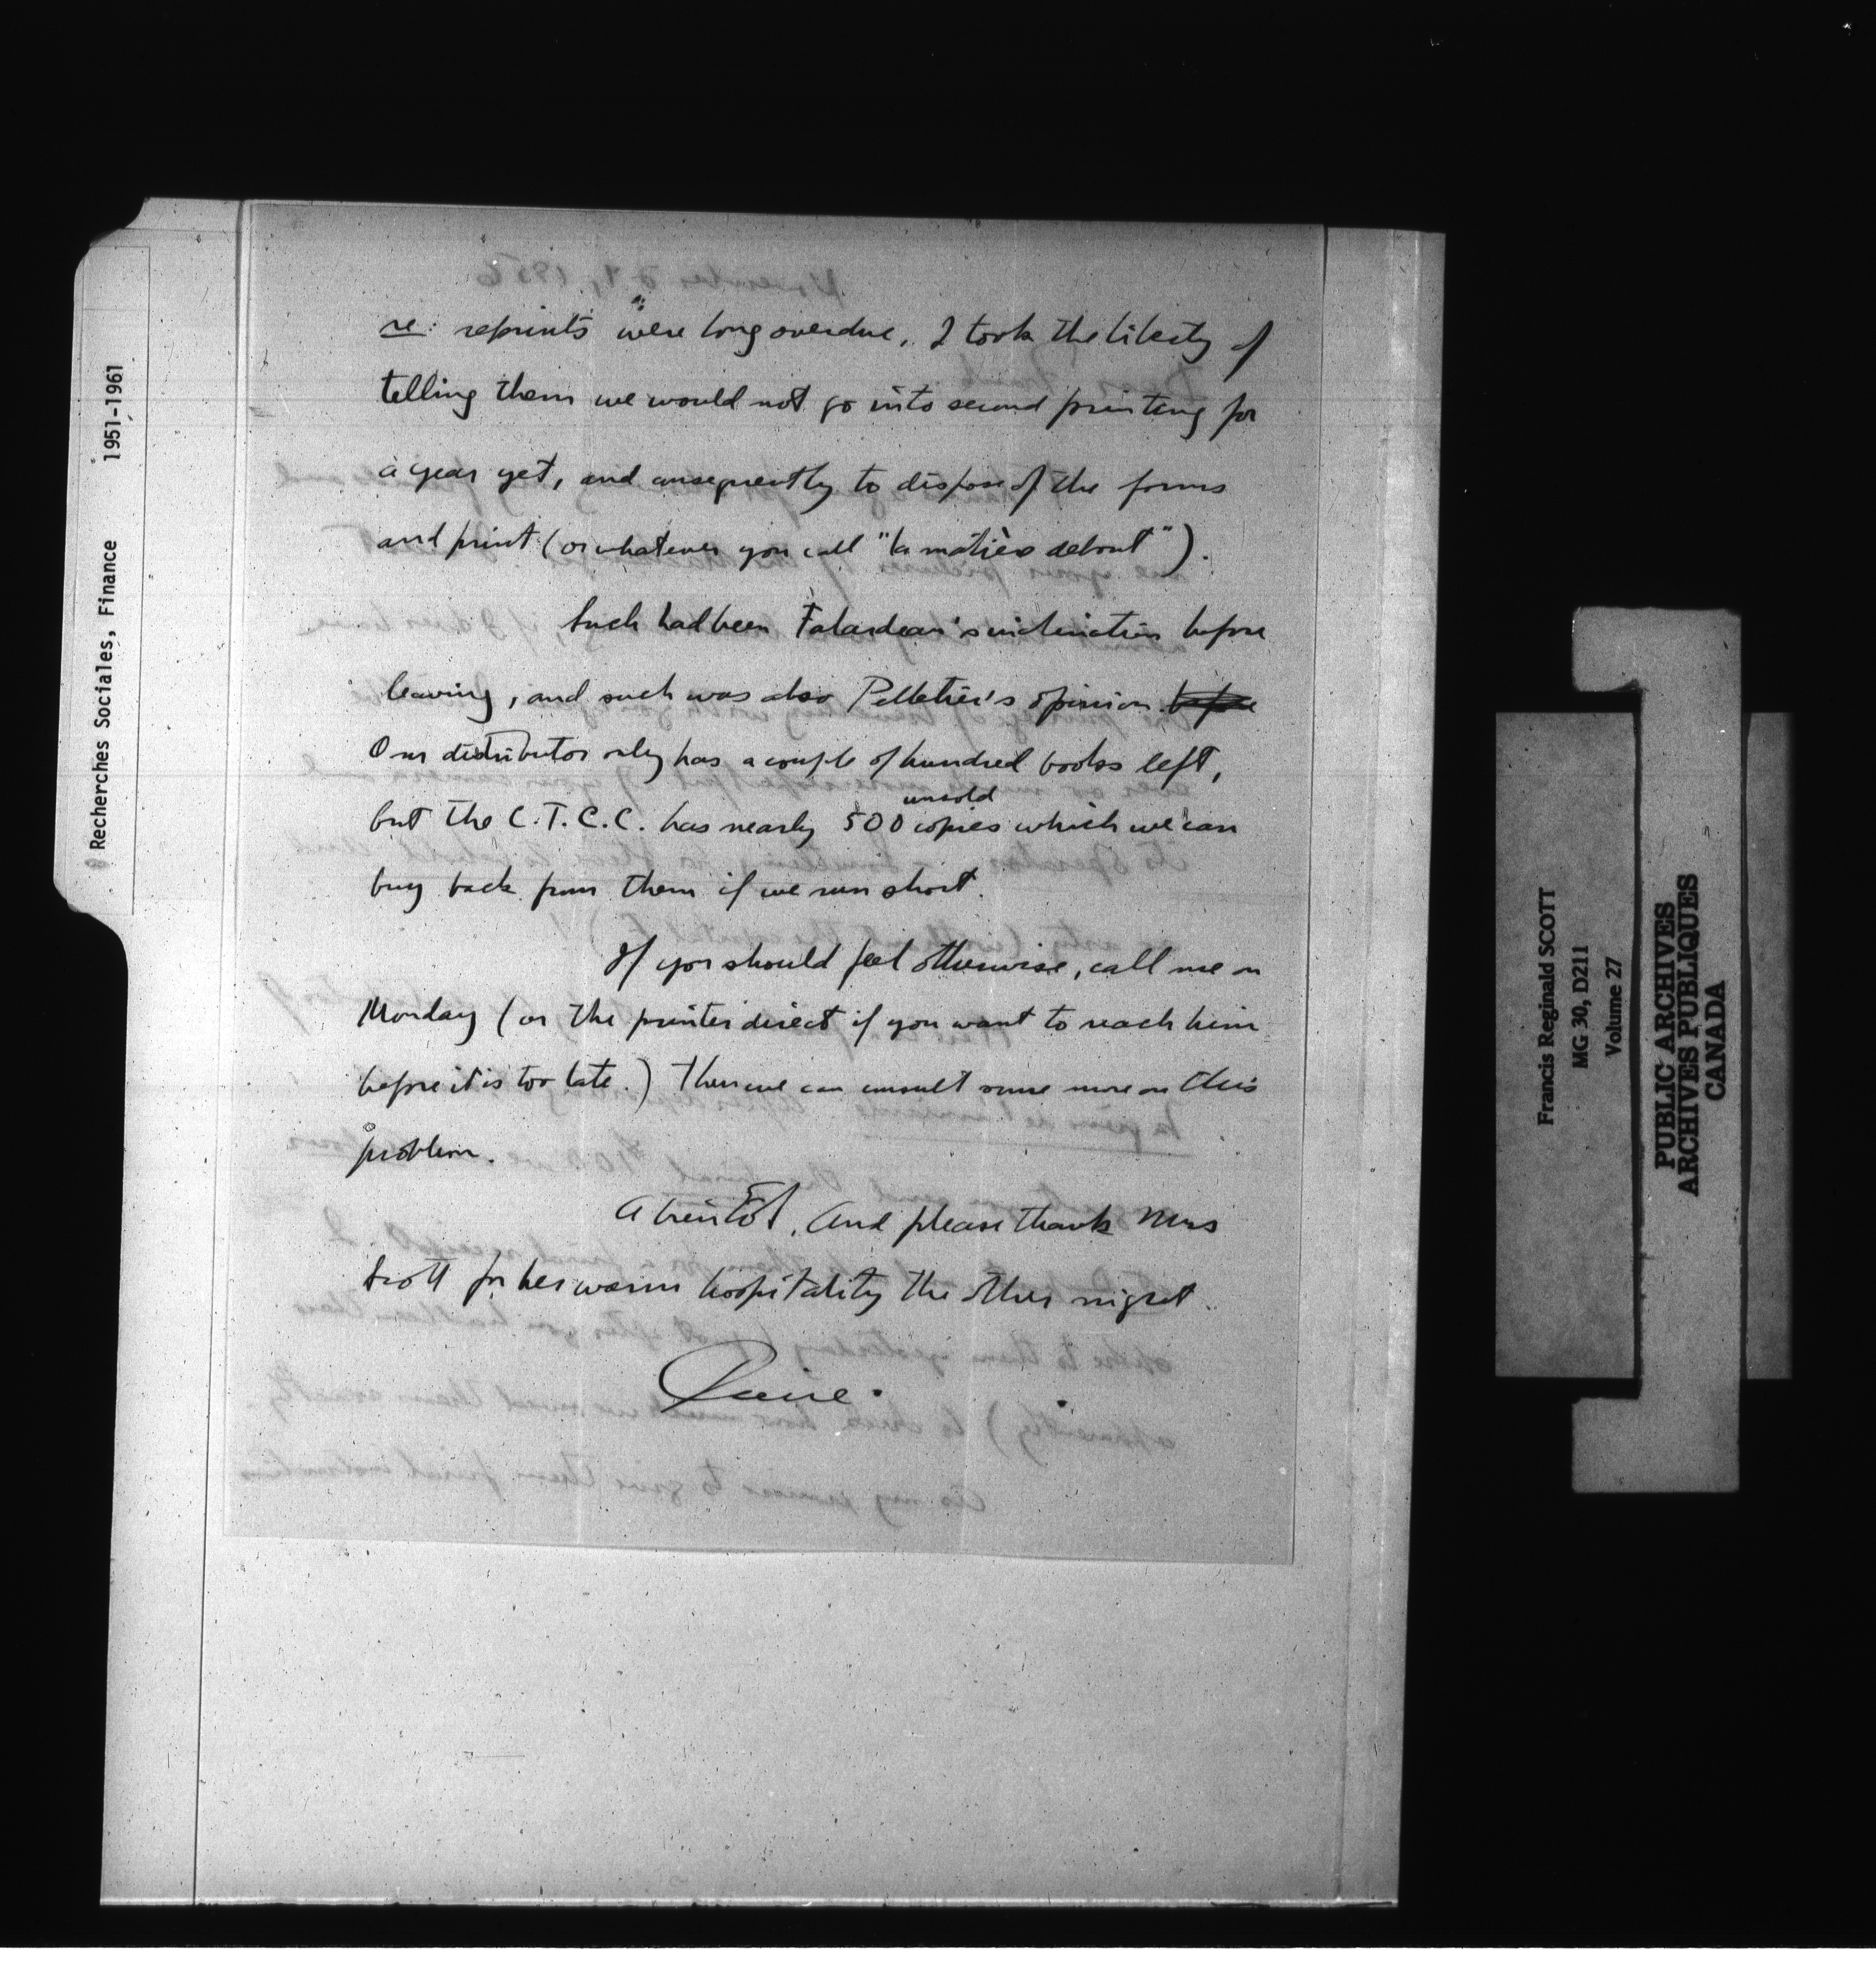 Recherches Sociales, Finance 1951-1961
re: reprints were long overdue, I took the liberty of
telling them we would not go into second printing for
a year yet, and consequently to dispose of the forms
and print (or whatever you call "la matière debout").
Such had been Falardeau's inclination before
leaving, and such was also Pelletier's opinion. before
Our distributor only has a couple of hundred books left,
but the C.T.C.C. has nearly 500 unsold copies which we can
buy back from them if we run short.
If you should feel otherwise, call me on
Monday (or the printer direct if you want to reach him
before it is too late.) Then we can consult some more on this
problem.
A bientôt, and please thank Mrs
Scott for her warm hospitality the other night.
Francis Reginald SCOTT
MG 30, D211
Volume 27
PUBLIC ARCHIVES
ARCHIVES PUBLIQUES
CANADA